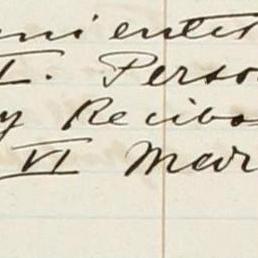 nientes
I. Perso
y Recibo
VI Mar